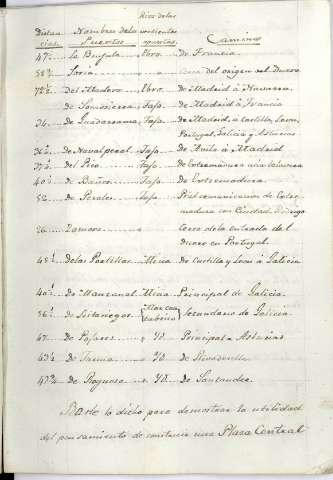 Rios de las
Distan Nombres de los vertientes
cias Puertos opuestas. Caminos
47½ La Brujula Ebro De Francia
Soria Cerca del origen del Duero
De Madero Ebro De Madrid á Navarra
de Somosierra Tajo De Madrid á Francia
34 de Guadarrama Tajo De Madrid, á Castilla, Leon,
Portugal, Galicia y Asturias
de Navalperal Tajo De Avila á Madrid
37½ del Pico Tajo De Extremadura
40½ de Baños Tajo De Extremadura
52 de Perales Tajo comunicacion de Extre-
madura con Ciudad Rodrigo
26 Zamora Cerca de la entrada del
Duero en Portugal
45½ de las Portillas Miño de Castilla y Leon á Galicia
40½ De Manzanal Miño Principal de Galicia.
56½ de Leitariegos Mar can
tabrico Secundario de Galicia
47 de Pajares Yd. Principal de Asturias
43½ de Tarna Yd. de Rivadesella
47½ de Reynosa Yd. De Santander.
Baste lo dicho para demostrar la utilidad
del pensamiento de construir una Plaza Central